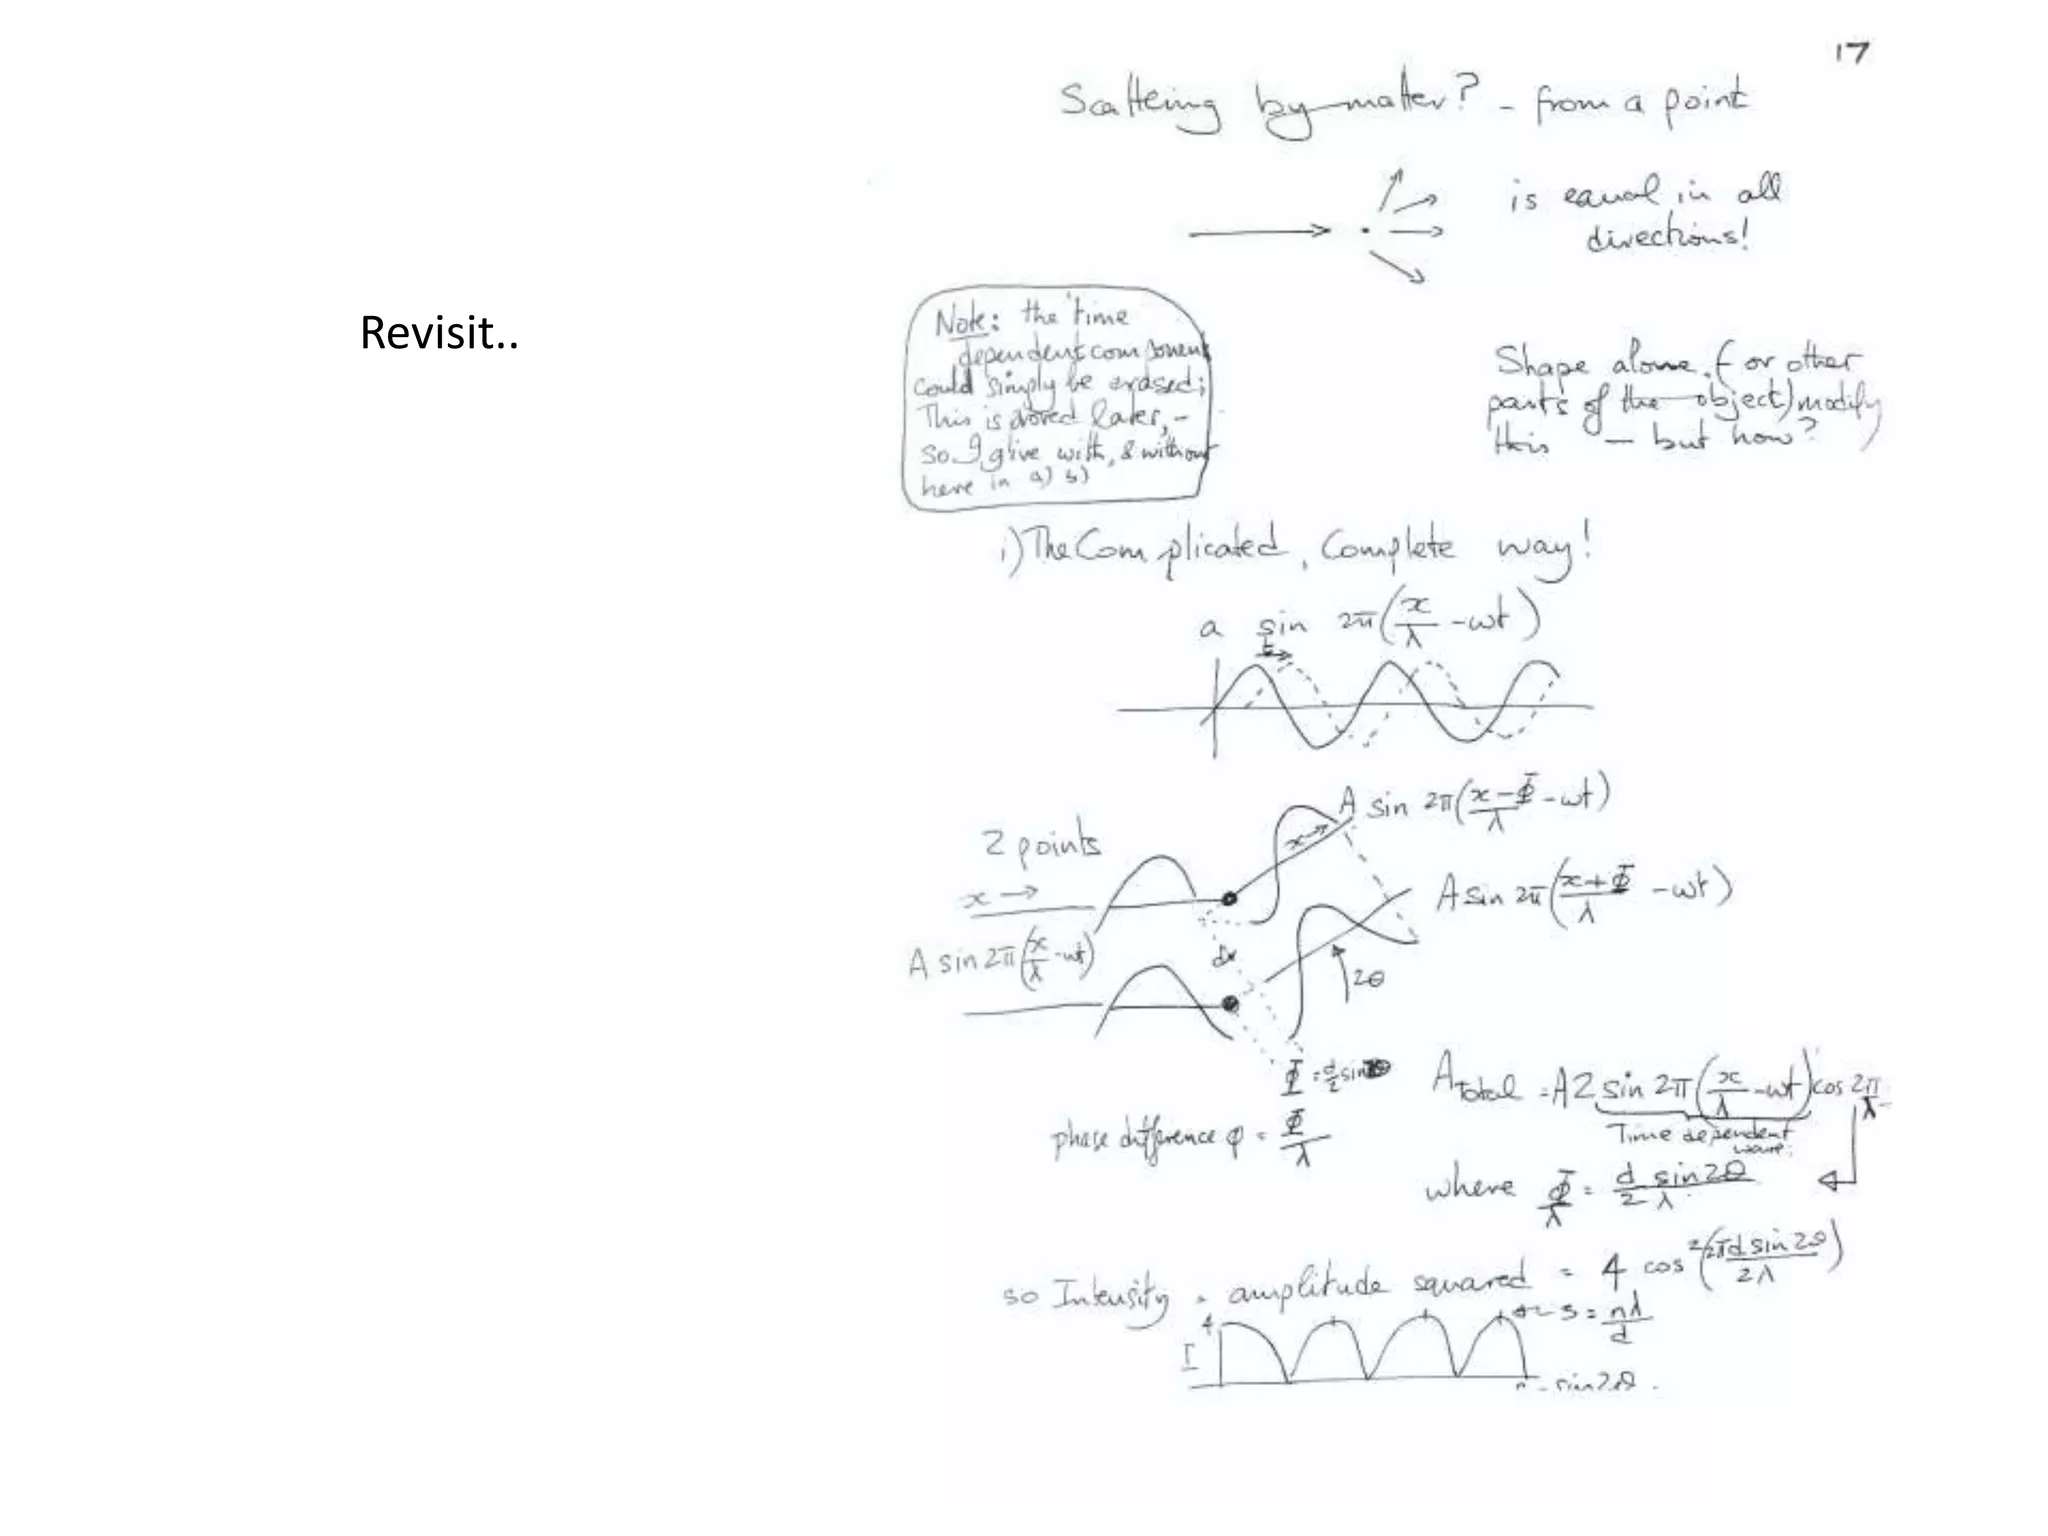 17
Scattering by matter? - from a point
is equal in all
directions!
Revisit..
Note: the time
dependent component
could simply be erased;
This is proved later, -
so I give with, & without
here in a) b)
Shape alone, (or other
parts of the object) modify
this - but how?
i) The Complicated, Complete way!
a sin 2π(x/λ - wt)
t
2 points
x →
A sin 2π(x-Φ/λ - wt)
x →
A sin 2π(x+Φ/λ - wt)
A sin 2π(x/λ - wt)
d
2θ
Φ = d/2 sin
phase difference φ = Φ/λ
A Total = A 2 sin 2π(x/λ - wt) cos 2π
Time dependent
wave.
where Φ/λ = d sin2θ/2λ
so Intensity = amplitude squared = 4 cos²(2πd sin2θ/2λ)
4
I
s = nλ/d
sin2θ